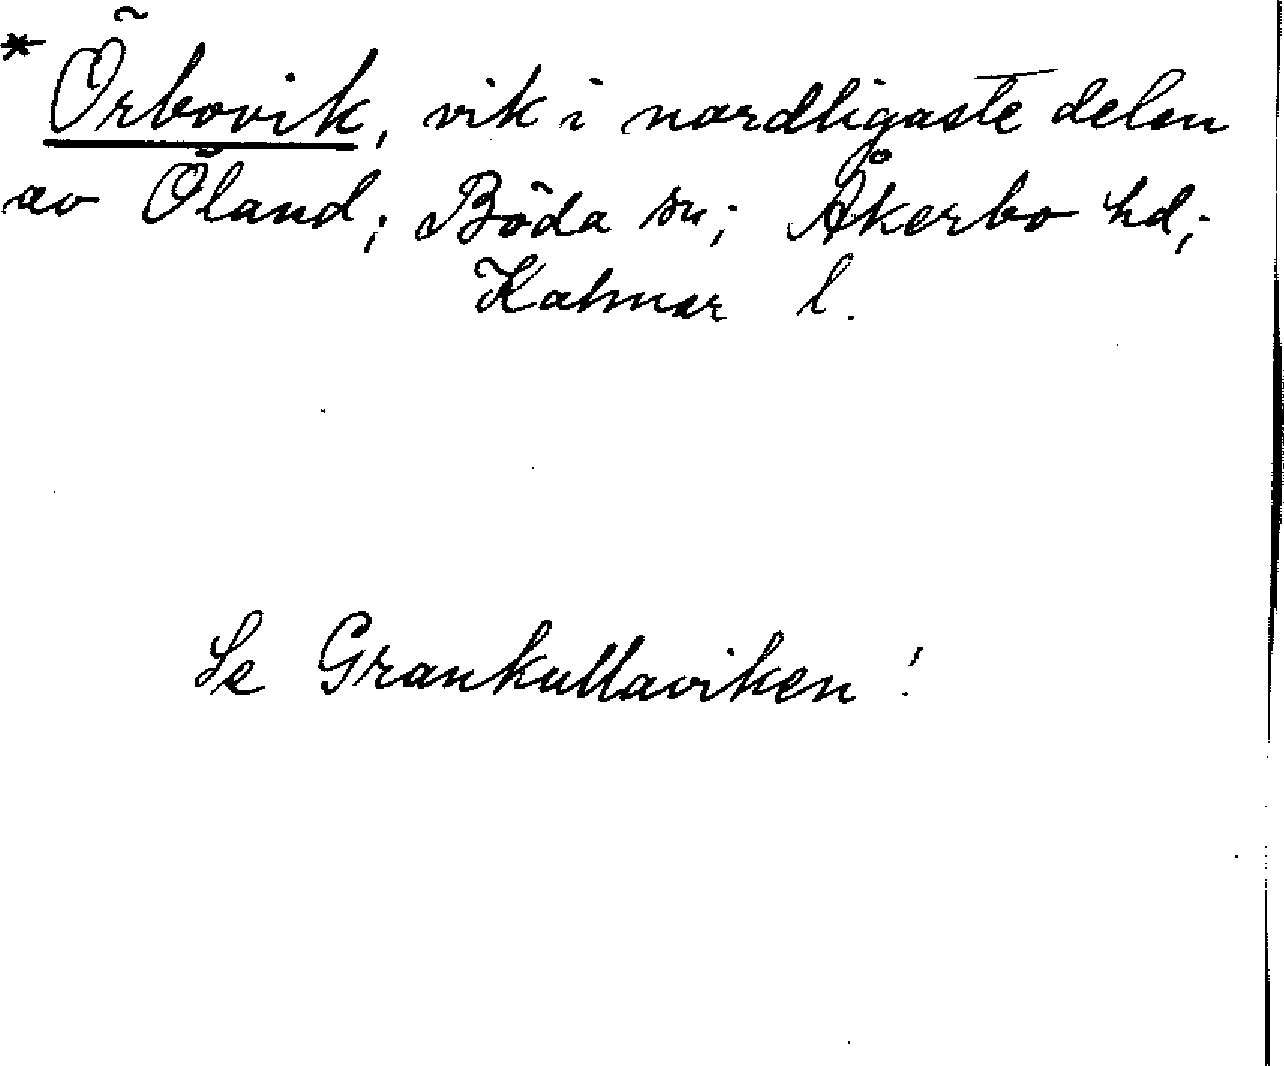 * Örbovik, vik i nordligaste delen
av Öland; Böda sn; Åkerbo hd;
Kalmar l.
Se Grankullaviken!